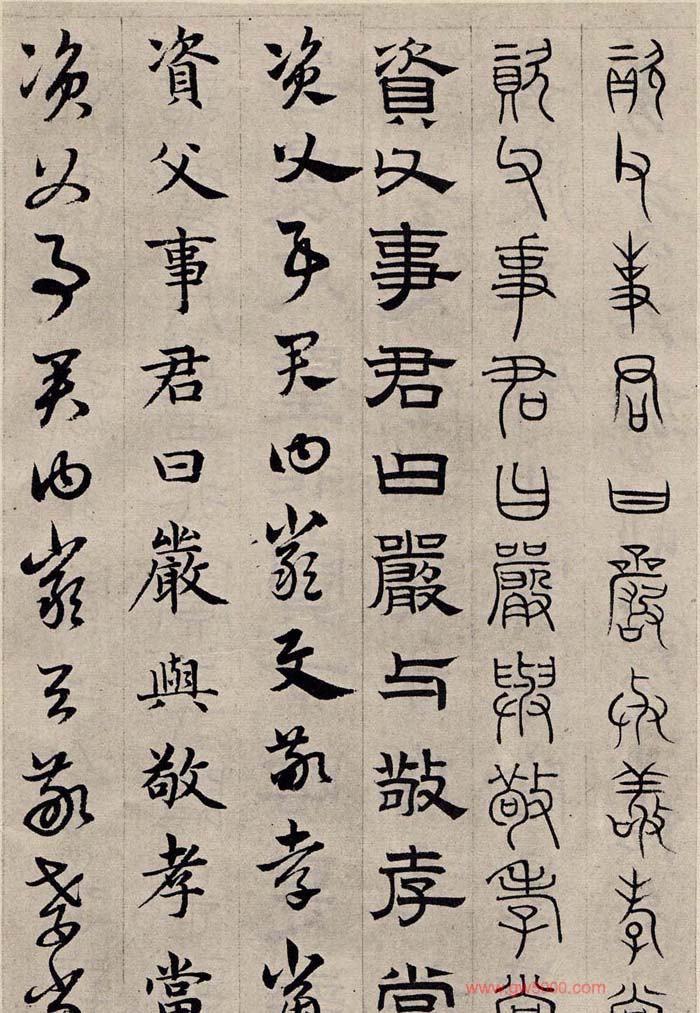 資父事君曰嚴與敬孝當
資父事君曰嚴與敬孝當
資父事君曰嚴与敬孝當
資父事君曰嚴與敬孝當
資父事君曰嚴與敬孝當
資父事君曰嚴與敬孝當
www.gw5000.com